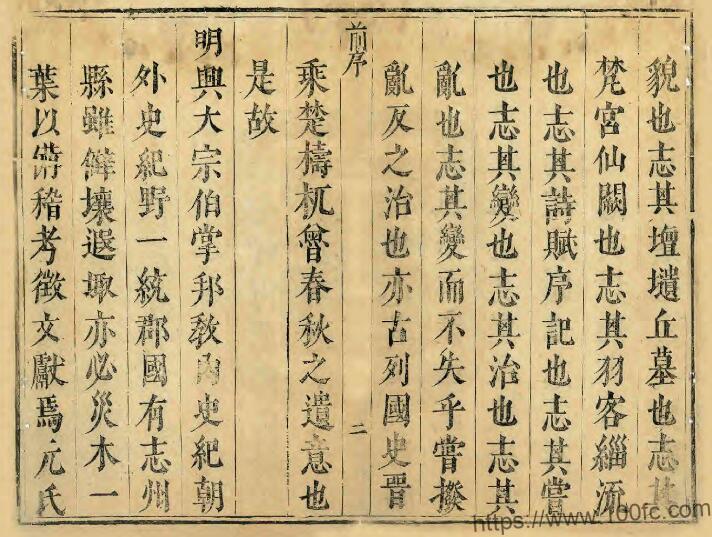 貌也志其壇壝丘墓也志其
梵宮仙闕也志其羽客緇流
也志其詩賦序記也志其嘗
也志其變也志其治也志其
亂也志其變而不失乎嘗撥
亂反之治也亦古列國史晉
前序 二
乘楚檮杌曾春秋之遺意也
是故
明興大宗伯掌邦敎內史紀朝
外史紀野一統郡國有志州
縣雖僻壤遐陬亦必災木一
葉以俻稽考徵文獻焉元氏
https://www.100fc.com